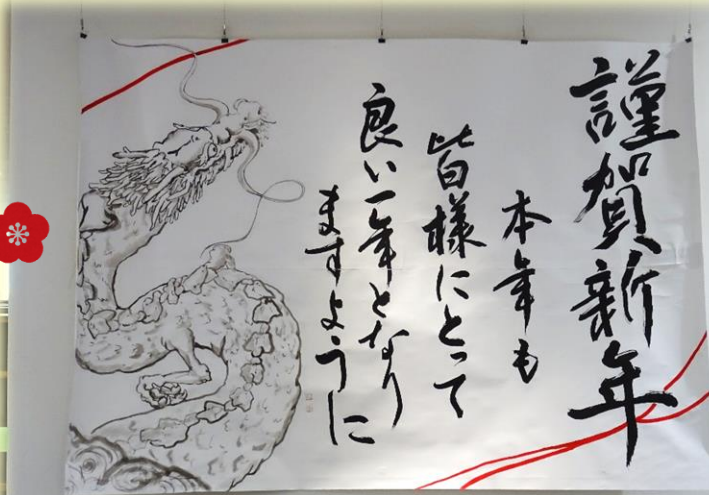 謹賀新年
本年も
皆様にとって
良い一年となり
ますように